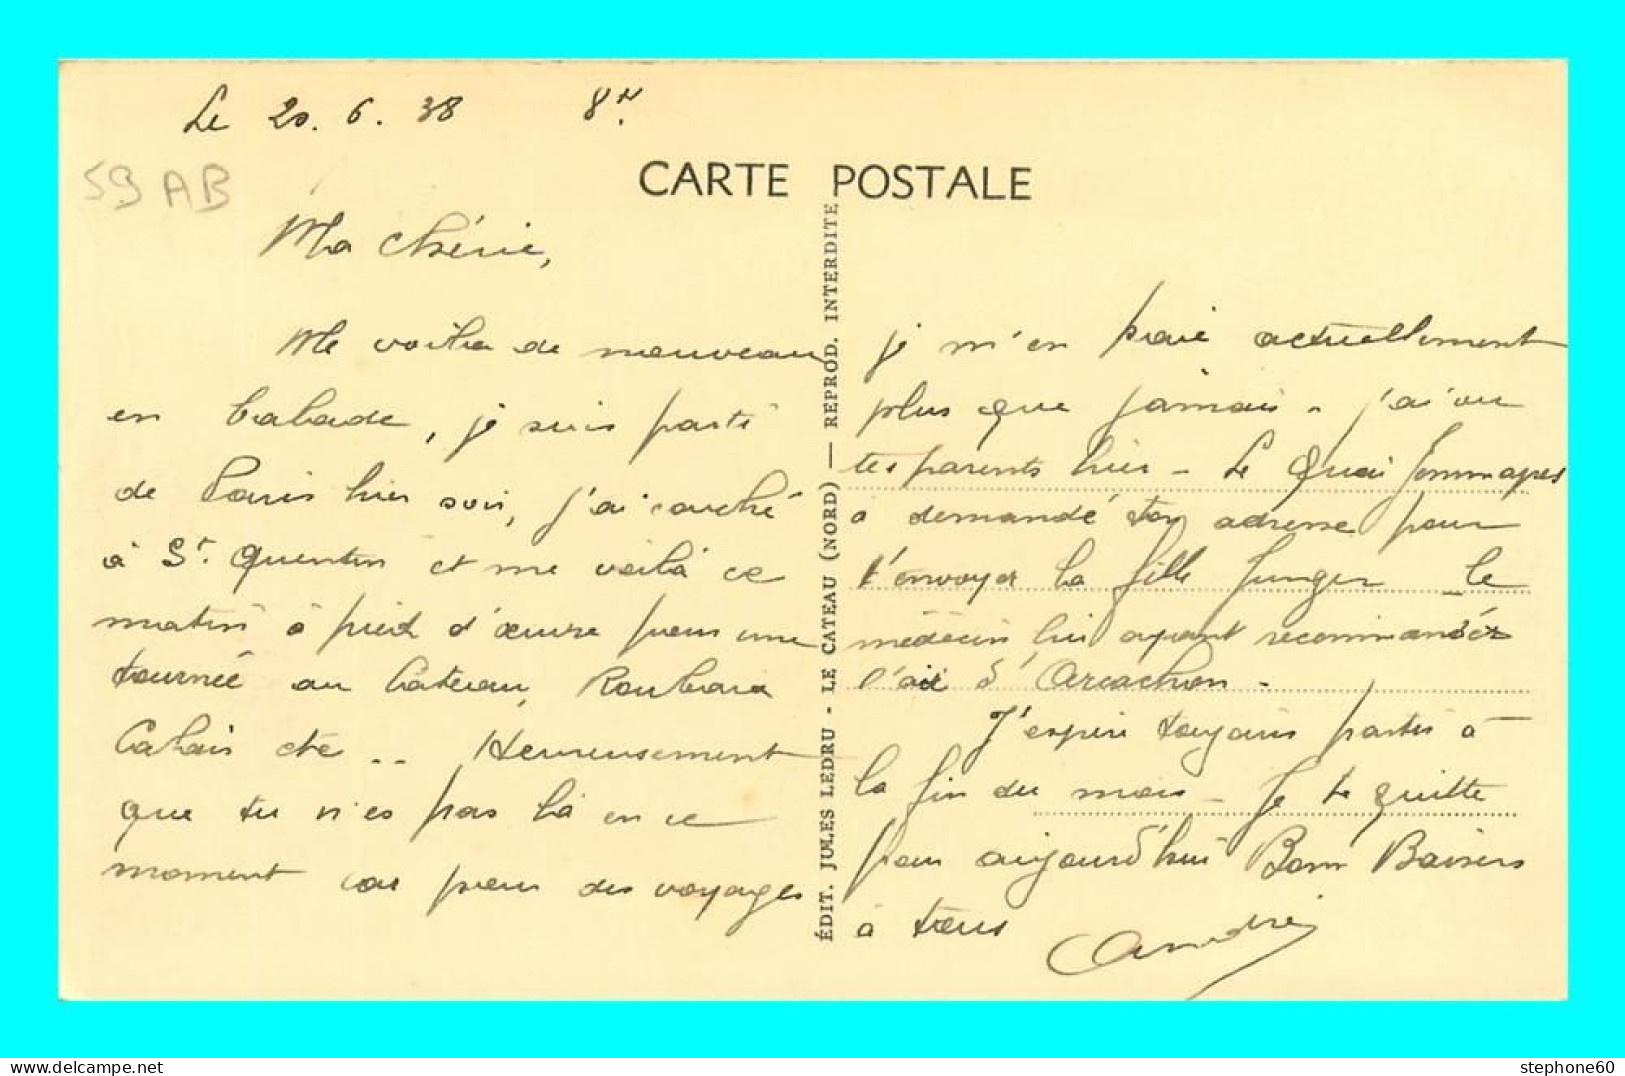 Le 20.6.38 8H.
59 AB
CARTE POSTALE
Ma chérie,
Me voilà de nouveau
en balade, je suis parti
de Paris hier soir, j'ai couché
à St. Quentin et me voilà ce
matin à pied d'œuvre pour une
tournée au Cateau, Roubaix
Calais etc.. Heureusement
que tu n'es pas là en ce
moment car pour des voyages
ÉDIT. JULES LEDRU - LE CATEAU (NORD) — REPROD. INTERDITE
je m'en paie actuellement
plus que jamais - j'ai vu
tes parents hier - Le Quai Jemmapes
a demandé ton adresse pour
t'envoyer la fille Junger le
médecin lui ayant recommandé
l'air d'Arcachon -
J'espère toujours partir à
la fin du mois - Je te quitte
pour aujourd'hui Bons Baisers
à tous
André
stephone60